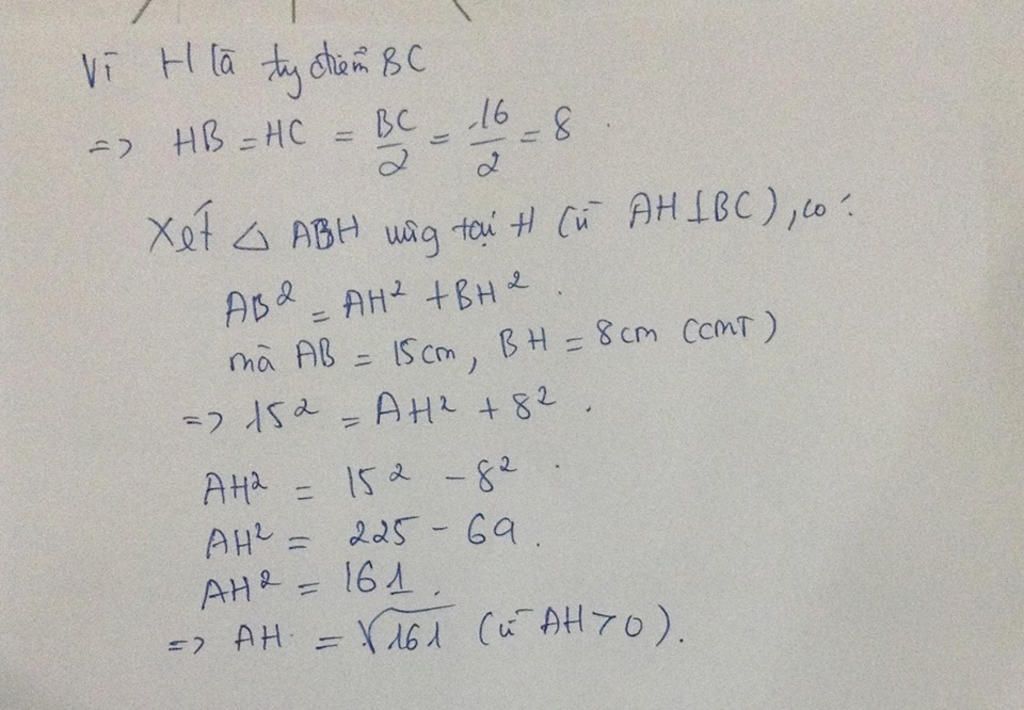 Vì H là tg điểm BC
=> HB = HC = BC/2 = 16/2 = 8.
Xét △ ABH vuông tại H (vì AH ⊥ BC), có:
AB² = AH² + BH².
mà AB = 15cm, BH = 8cm (cmt)
=> 15² = AH² + 8².
AH² = 15² - 8².
AH² = 225 - 64.
AH² = 161.
=> AH = √161 (vì AH > 0).